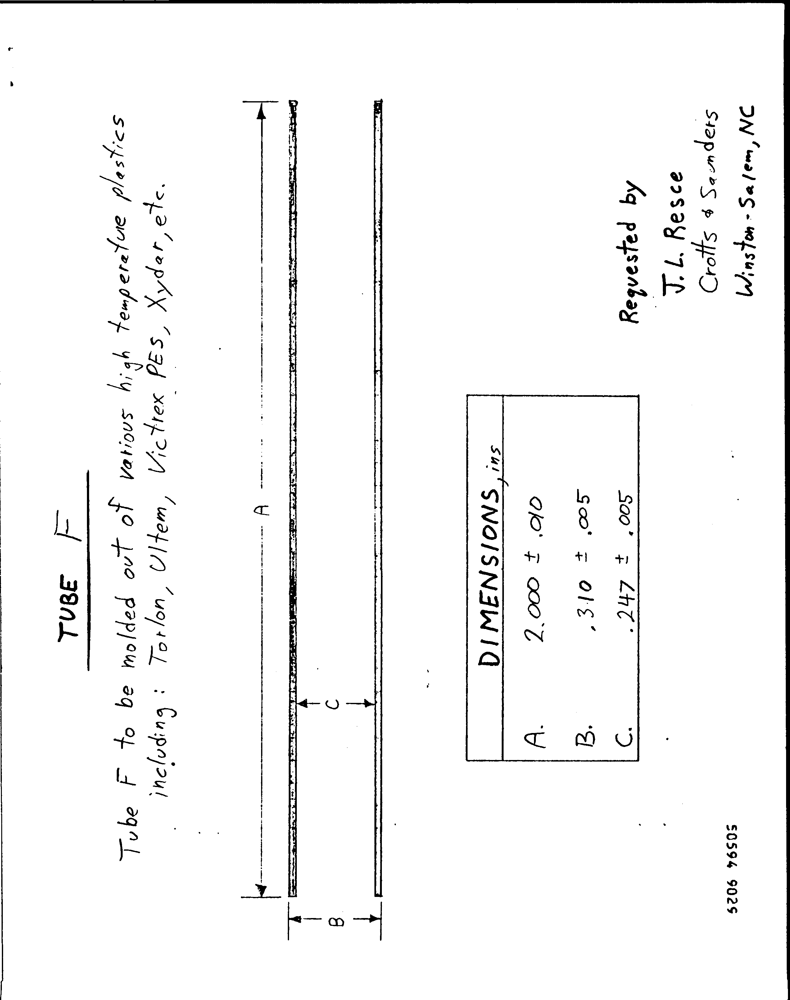 TUBE F
Tube F to be molded out of various high temperature plastics
including : Torlon, Ultem, Victrex PES, Xydar, etc.
A
C
B
DIMENSIONS, ins
A. 2.000 ± .010
B. .310 ± .005
C. .247 ± .005
Requested by
J. L. Resce
Crotts & Saunders
Winston-Salem, NC
50594 9025